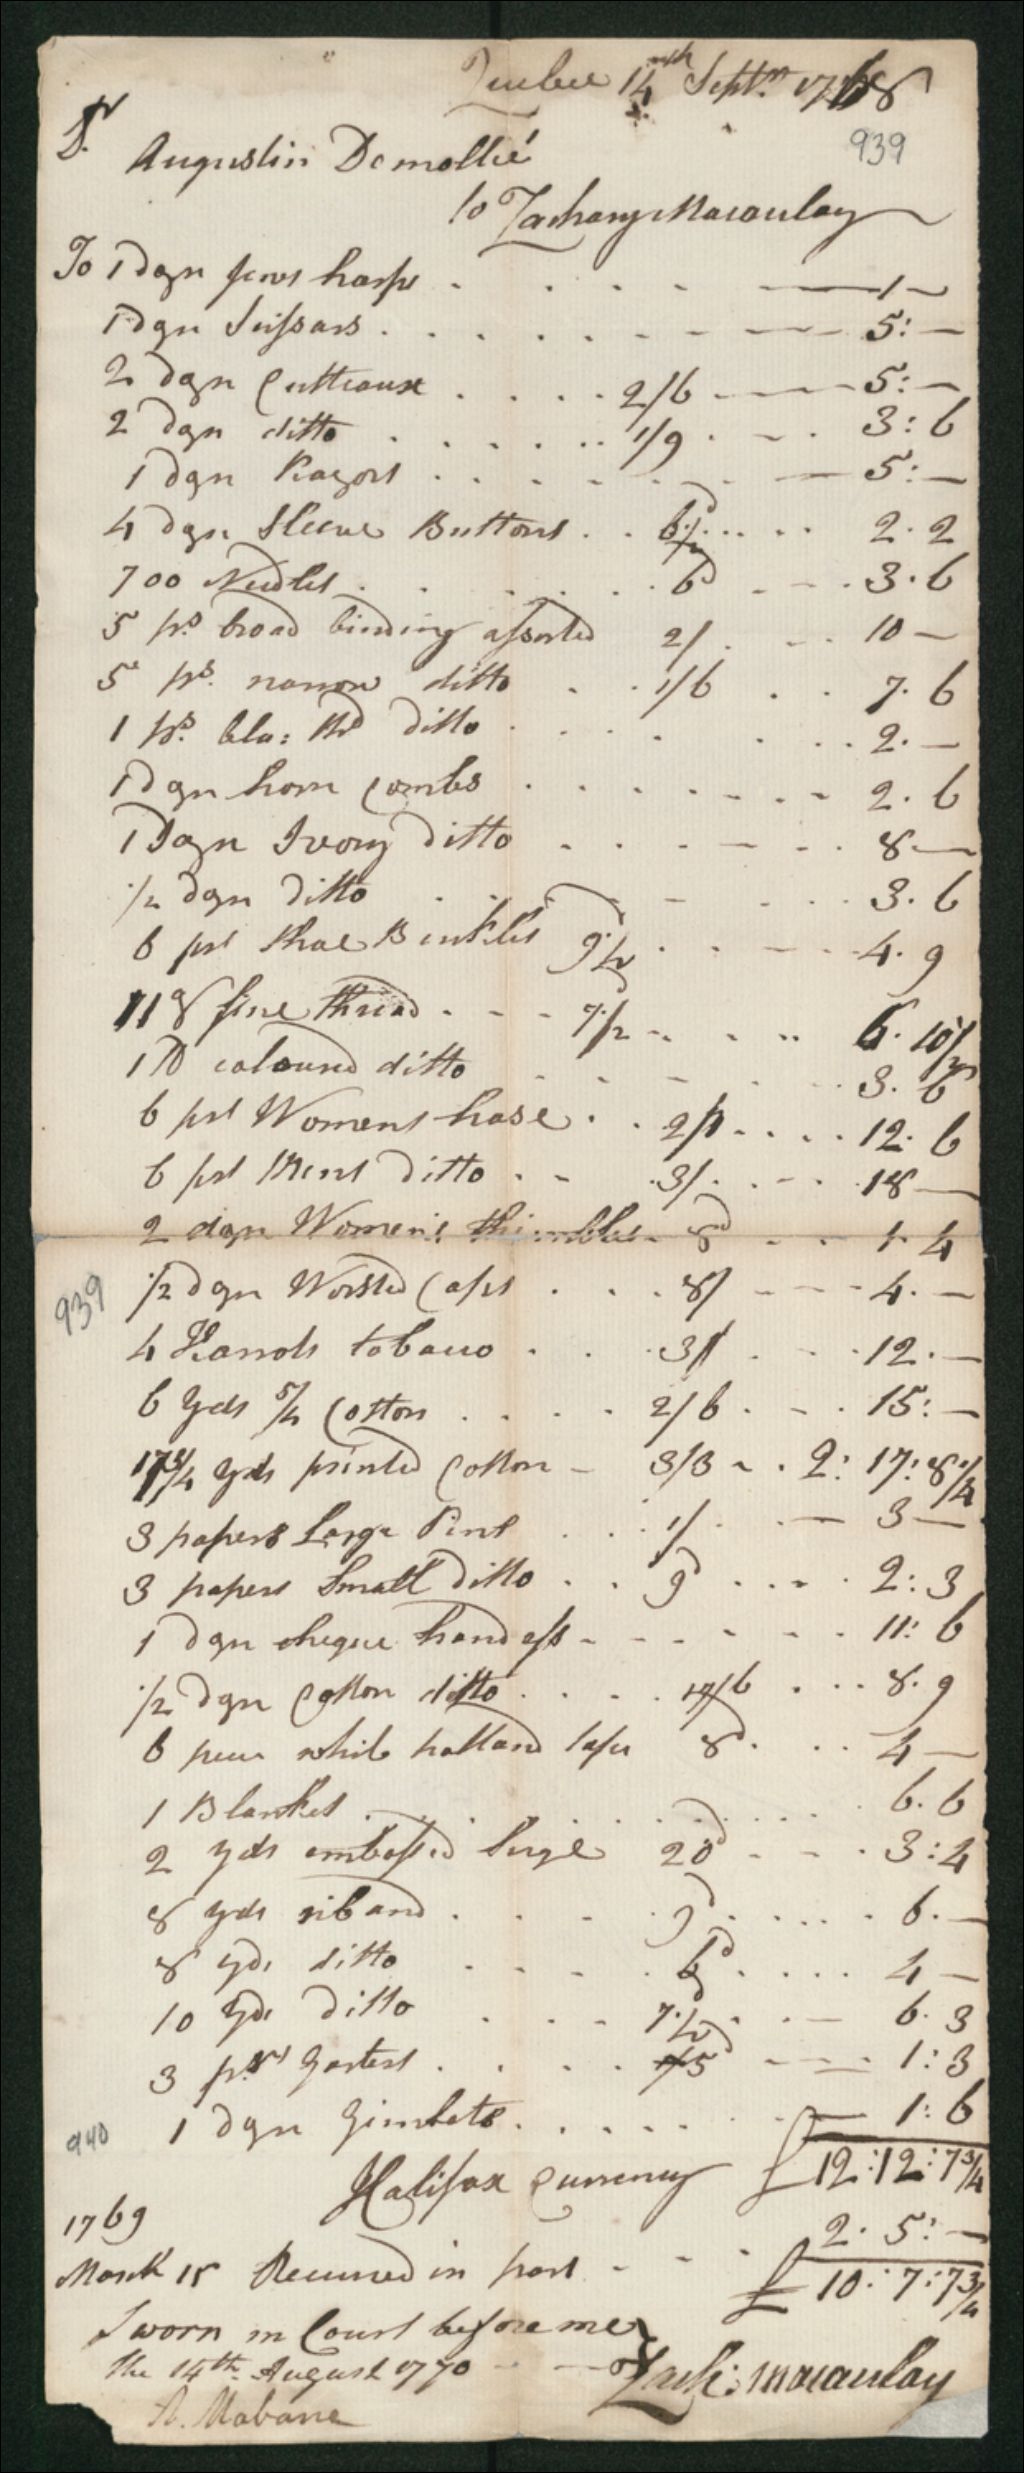 Quebec 14th Septr 1768
939
Dr
Augustin Demollié
to Zachary Macaulay
To 1 dozn Jews harps . . . . 1 —
1 dozn Scissars . . . . 5: —
2 dozn Cutteaux . . . . 2/6 — 5: —
2 dozn ditto . . . . 1/9 . - . 3: 6
1 dozn Razors . . . . 5: —
4 dozn Sleeve Buttons . . 6½d . . . . 2. 2
700 Needles . . . . 6d - - . 3. 6
5 ps broad binding assorted 2/. . . . 10 —
5 ps. narrow ditto . . 1/6 . . 7. 6
1 ps. bla: thd ditto . . . . 2. —
1 dozn horn Combs . . . . 2. 6
1 Dozn Ivory ditto . . . . 8. —
½ dozn ditto . . . . 3. 6
6 prs Shoe Buckles 9½d . . . . 4. 9
11 8 fine thread . - - - 7/2 - . . .. 6. 10½
1 lb coloured ditto . . . . 3. 6
6 prs Womens hose . . 2/1 . . . . 12. 6
6 prs Mens ditto . . - . 3/. . - - . 18 —
2 dozn Women's thimbles - 8d - - . 1. 4
½ dozn Worsted Caps . . . 8/ - - - 4. —
4 Karrots tobacco . . . 3/ . - . 12. —
6 Yds 5/4 Cotton . . . . 2/6 . - . 15: —
17¾ yds printed Cotton - 3/3 - . 2: 17: 8¼
3 papers Large Pins . . . 1/ . . — 3 —
3 papers Small ditto . . 9d . . . . 2: 3
1 dozn cheque handfs - - - - - . . 11: 6
½ dozn Cotton ditto . . . . 17/6 . . . 8. 9
6 peces white holland tape 8d . . . 4 —
1 Blanket . . . . 6. 6
2 yds embossed Serge 20d - - . 3: 4
8 yds riband . . . . 9d . . . . 6. —
8 yds ditto . . . . 6d . . . . 4 —
10 Yds ditto . . . . 7½d . . — 6. 3
3 prs Garters . . . . 5d - - - 1: 3
1 dozn Gimlets . . . . 1: 6
939
940
Halifax Currency £12: 12: 7¾
1769
March 15 Received in part - - - . 2. 5: —
£ 10: 7: 7¾
Sworn in Court before me
the 14th August 1770 - - Zach: Macaulay
A. Mabane